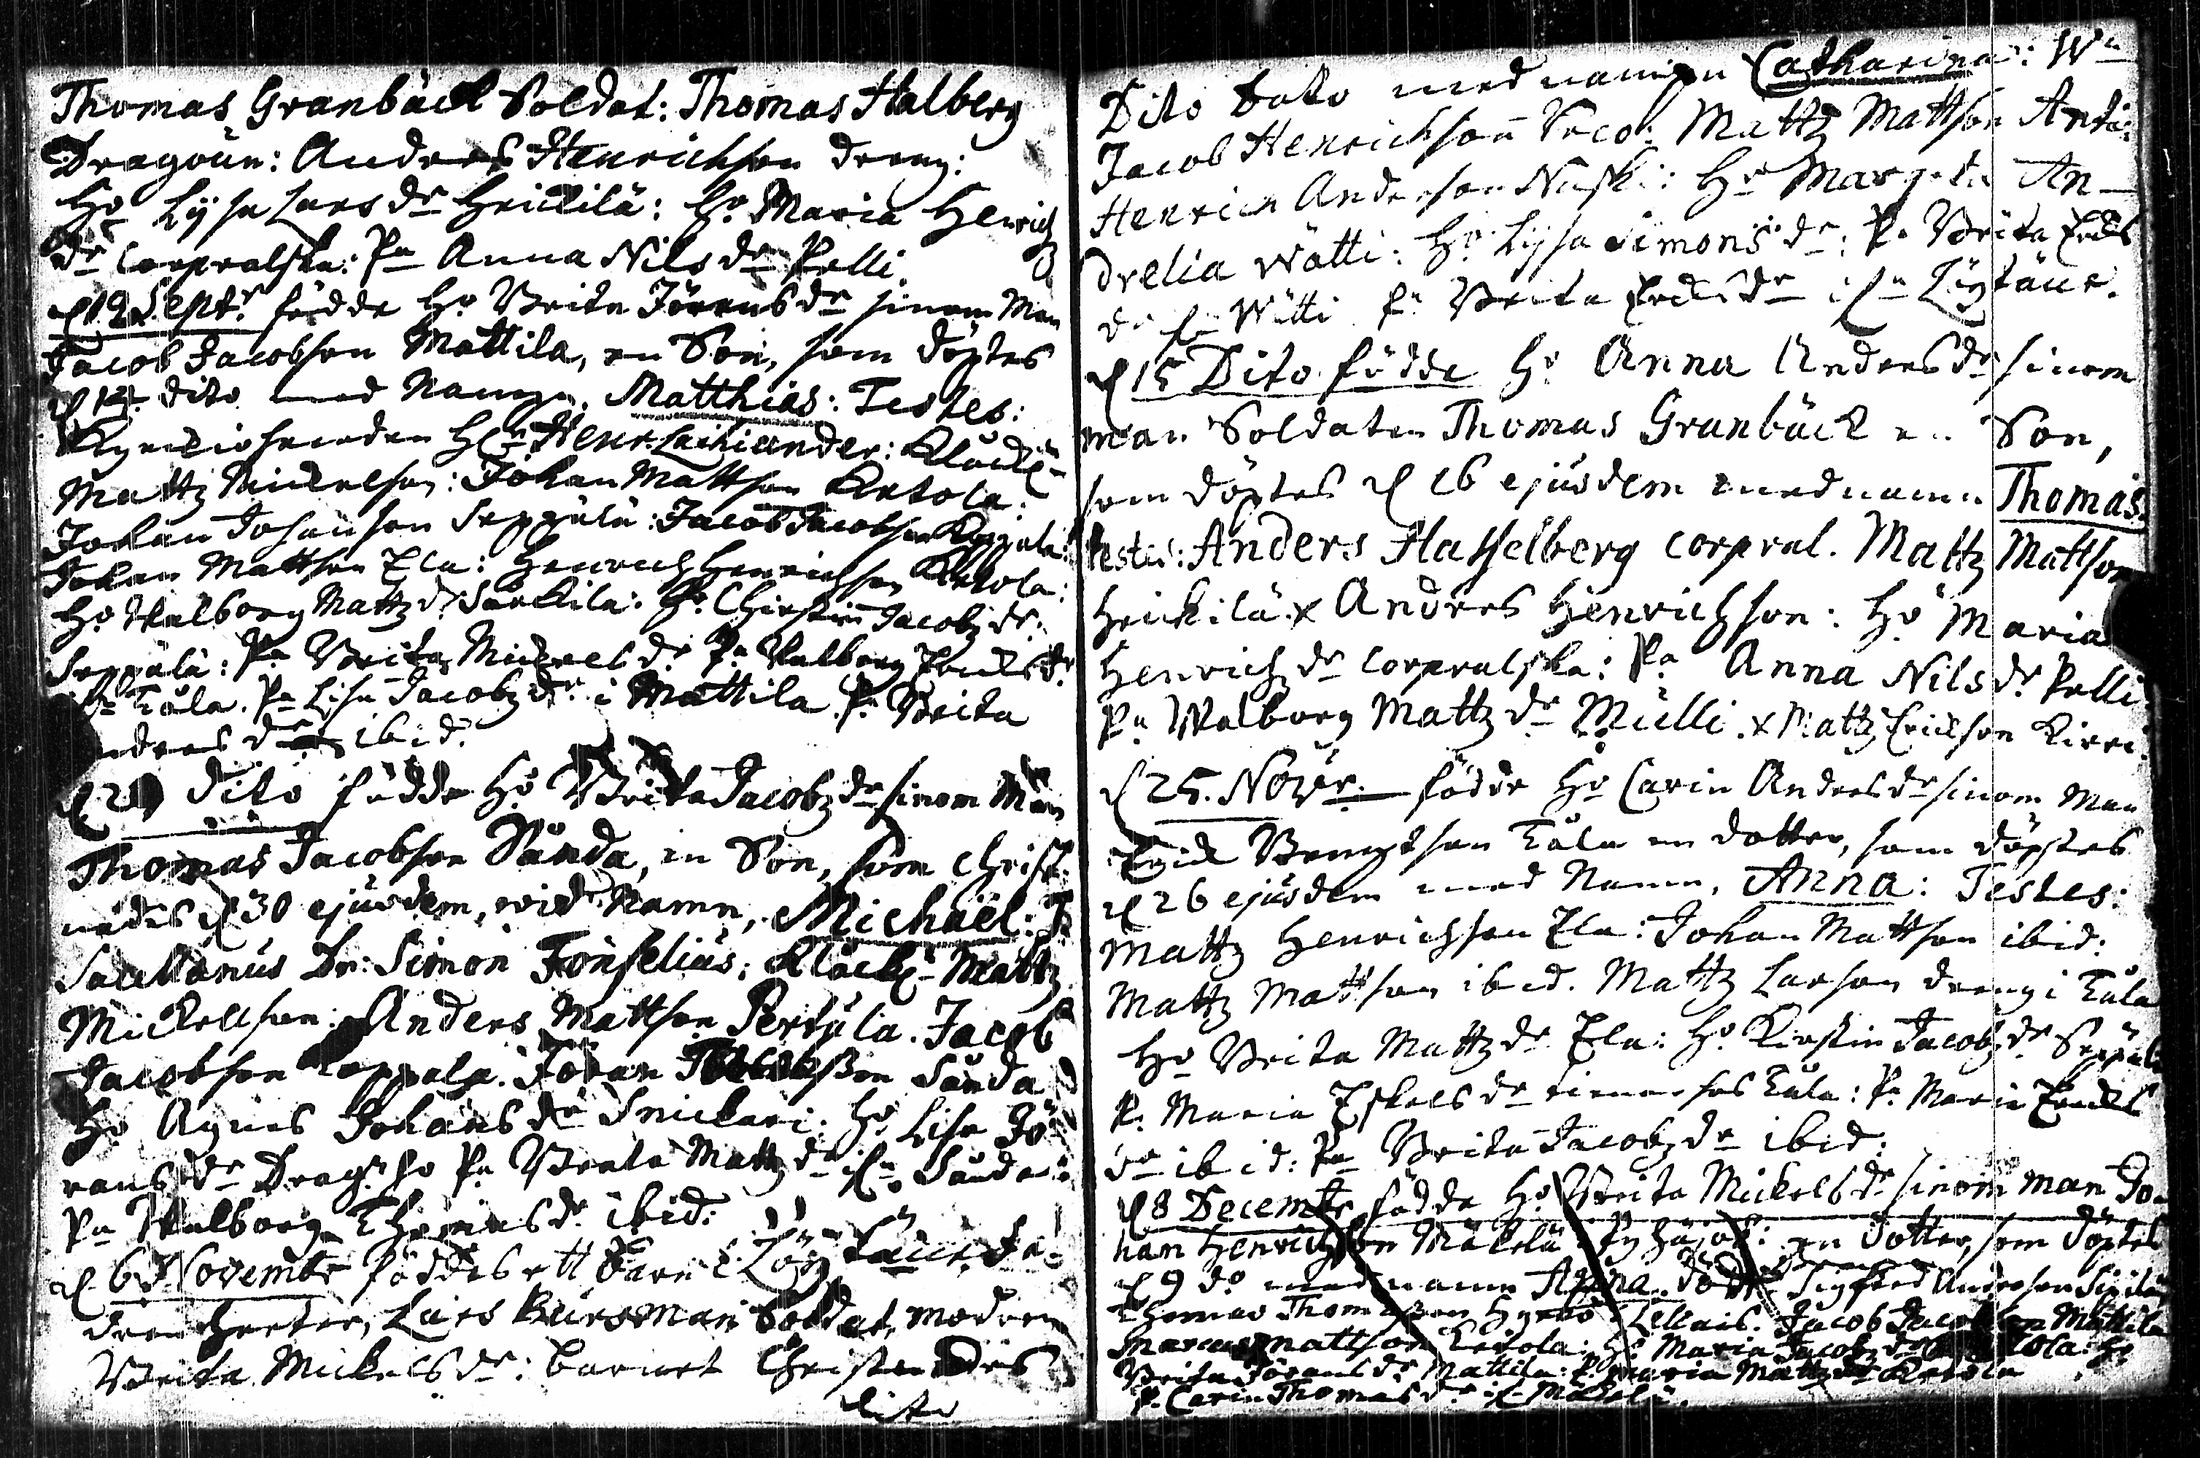 Thomas Granbäck Soldat: Thomas Halberg
Dragoun: Anders Henrichson dreng:
Ho Lysa Lars dr Heickilä: Ho Maria Henrichz
dr Corpralska: Pa Anna Nils dr Pelli
d 12 Septr födde Ho Brita Jörens dr sinom Man
Jacob Jacobson Mattila, en Son, som döptes
d dito med Namn, Matthias: Testes:
Henr. Laihiander: Klåck:
Mattz Mickelson: Johan Mattson Ketola:
Johan Johanson Seppälä: Jacob Jacobson
Johan Mattson Ela: Henrich Henrichson Ketola:
Ho Walborg Mattz dr Särkilä: Ho Christin Jacobz dr
Seppälä: Pa Brita Mickels dr Pa Walborg Ericks dr
Tåla. Pa Lisa Jacobz dr i Mattila Pa Brita
dr ibid:
d dito födde Ho Brita Jacobz dr sinom Man
Thomas Jacobson Sånda, en Son, som Christ-
nades d 30 ejusdem, wid Namn, Michaël: T
Sacellanus Dn: Simon Fonselius: Klåck: Mattz
Mickellson: Anders Mattson Pertula. Jacob
Jacobson Loppala. Jöran Sånda
Ho Agnes Johans dr Snickari: Ho Lisa Jö-
rans dr Pa Beata Mattz dr Sånda:
Pa Walborg Thomas dr ibid:
d 6 Novembr föddes ett barn i
dren heeter, Lars Buursman Soldat, modren
Brita Mickels dr: barnet Christnades
dito
Dito dato med namnen Catharina: Wn
Jacob Henrichson Mattz Mattson Anti:
Henrich Anderson Ho Margeta An-
drelia Wätti: Ho Lysa Simons dr: Pa Brita Ericks
dr Wätti Pa Brita Ericks dr Löytäne.
d 15 Dito födde Ho Anna Anders dr sinom
man Soldaten Thomas Granbäck en Son,
som döptes d 16 ejusdem med namn Thomas.
testes: Anders Hasselberg corpral. Mattz Mattson
Heickilä x Andres Henrichson: Ho Maria
Henrichz dr Corpralska: Pa Anna Nils dr Pelli
Pa Walborg Mattz dr Mülli. x Mattz Erickson Kirri.
d 25. Novr. födde Ho Carin Anders dr sinom Man
Erick Bengtson Tåla en dotter, som döptes
d 26 ejusdem med Namn, Anna: Testes:
Mattz Henrichson Ela: Johan Mattson ibid:
Mattz Mattson ibid. Mattz Larson dreng i Tåla
Ho Brita Mattz dr Ela: Ho Kirstin Jacobz dr Seppälä
P. Maria Eskels dr Tåla: Pa Maria Ericks
dr ibid: Pa Brita Jacobz dr ibid:
d 8 Decembr födde Ho Brita Mickels dr sinom man Jo-
han Henrichson Mäkelä en dotter, som döptes
d 9 do med namn Anna. Sigfred Anderson
Thomas Thomasson Jacob Jacobson Mattila
Marcus Mattson Ketola. Ho Maria Jacobz dr Ho
Brita Jörans dr Mattila: P. Maria Mattz dr Ketola
P. Carin Thomas dr Mäkelä.